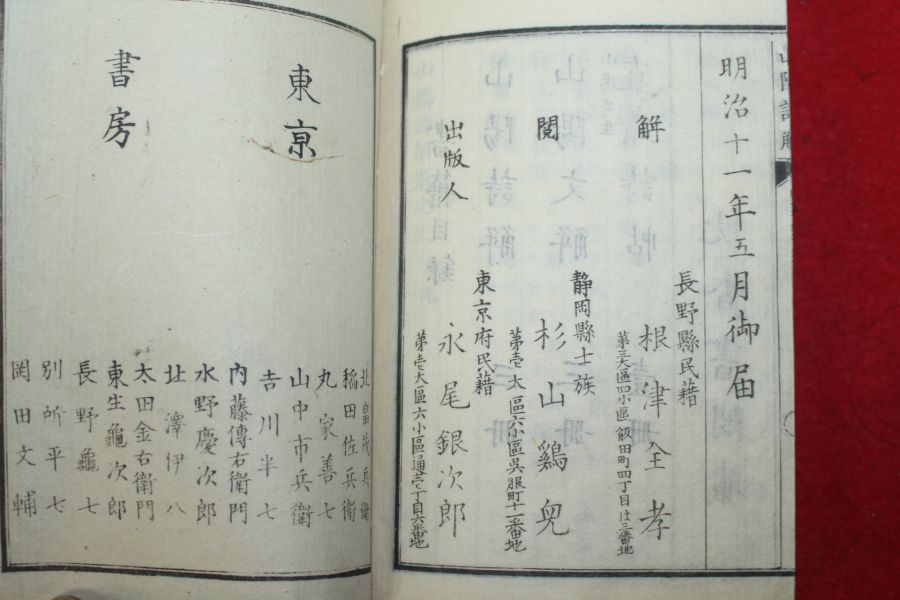 明治十一年五月御届
長野縣民籍
解 根津全孝
第三大區四小區飯田町四丁目廿三番地
静岡縣士族
閲 杉山鷄兒
第壱大區六小區呉服町十一番地
東京府民籍
出版人 永尾銀次郎
第壱大區六小區通壱丁目六番地
東京
書房
北畠茂兵衛
稲田佐兵衛
丸家善七
山中市兵衛
吉川半七
内藤傳右衛門
水野慶次郎
北澤伊八
太田金右衛門
東生龜次郎
長野龜七
別所平七
岡田文輔